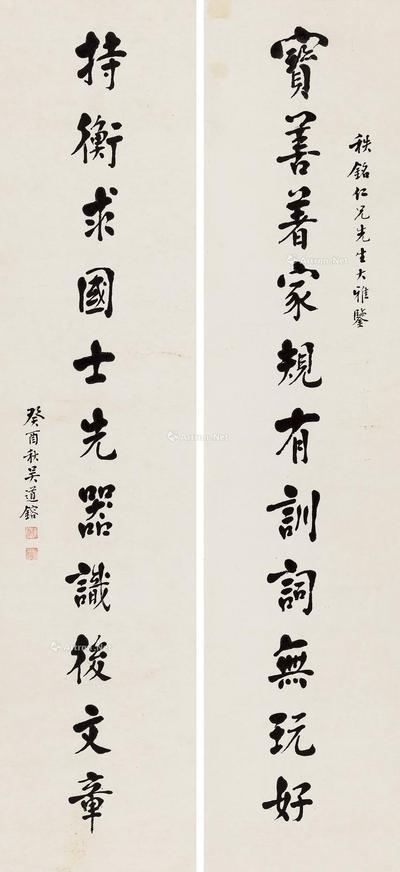 秩銘仁兄先生大雅鑒
寶善著家規有訓詞無玩好
持衡求國士先器識後文章
癸酉秋吳道鎔